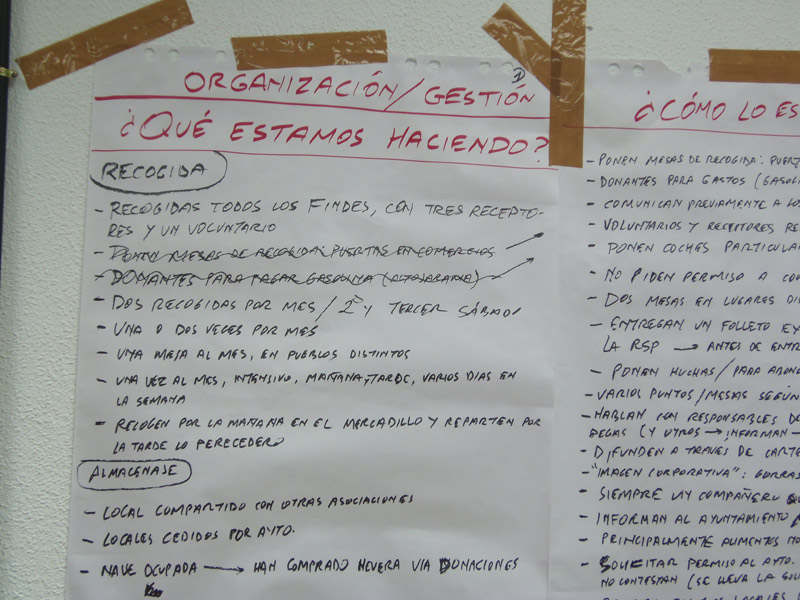 ORGANIZACIÓN/GESTIÓN
¿QUÉ ESTAMOS HACIENDO?
RECOGIDA
- RECOGIDAS TODOS LOS FINDES, CON TRES RECEPTO-
RES Y UN VOLUNTARIO
- PONEN MESAS DE RECOGIDA: PUERTAS EN COMERCIOS
- DONANTES PARA PAGAR GASOLINA
- DOS RECOGIDAS POR MES / 2º Y TERCER SÁBADO
- UNA O DOS VECES POR MES
- UNA MESA AL MES, EN PUEBLOS DISTINTOS
- UNA VEZ AL MES, INTENSIVO, MAÑANA, TARDE, VARIOS DIAS EN
LA SEMANA
- RECOGEN POR LA MAÑANA EN EL MERCADILLO Y REPARTEN POR
LA TARDE LO PERECEDERO
ALMACENAJE
- LOCAL COMPARTIDO CON OTRAS ASOCIACIONES
- LOCALES CEDIDOS POR AYTO.
- NAVE OCUPADA → HAN COMPRADO NEVERA VIA DONACIONES
¿CÓMO LO ES
- PONEN MESAS DE RECOGIDA: PUERT
- DONANTES PARA GASTOS (GASOLI
- COMUNICAN PREVIAMENTE A LO
- VOLUNTARIOS Y RECEPTORES RE
- PONEN COCHES PARTICULA
- NO PIDEN PERMISO A CO
- DOS MESAS EN LUGARES DI
- ENTREGAN UN FOLLETO EX
LA RSP → ANTES DE ENTR
- PONEN HUCHAS / PARA ABON
- VARIOS PUNTOS/MESAS SEGÚN
- HABLAN CON RESPONSABLES DE
PEGAS (Y OTROS → INFORMAN
- DIFUNDEN A TRAVES DE CARTE
- "IMAGEN CORPORATIVA": GORRAS
- SIEMPRE UN COMPAÑERO QU
- INFORMAN AL AYUNTAMIENTO
- PRINCIPALMENTE ALIMENTOS NO
- SOLICITAR PERMISO AL AYTO.
NO CONTESTAN (SE LLEVA LA SOLI